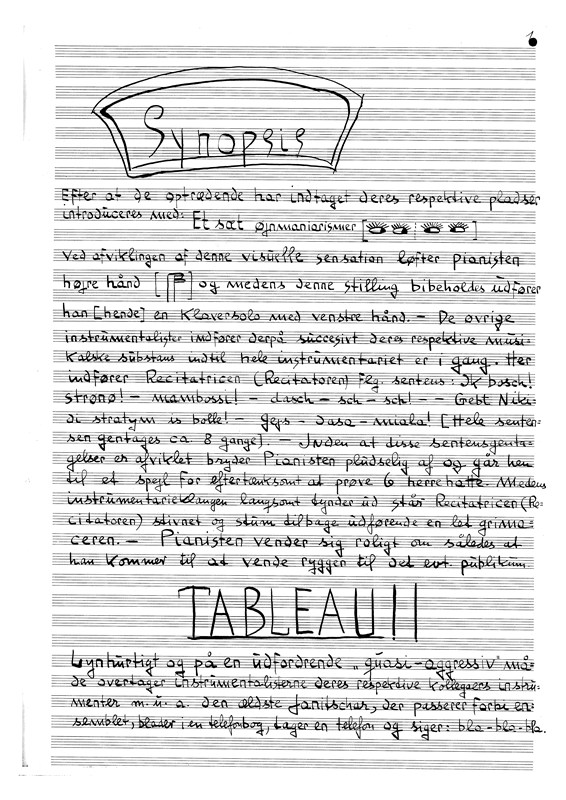 1
Synopsis
Efter at de optrædende har indtaget deres respektive pladser
introduceres med: Et sæt øjnmaniarismer [ : ]
Ved afviklingen af denne visuelle sensation løfter pianisten
højre hånd [ ] og medens denne stilling bibeholdes udfører
han [hende] en klaversolo med venstre hånd. – De øvrige
instrumentalister indfører derpå succesivt deres respektive musi=
kalske substans indtil hele instrumentariet er i gang. Her
indfører Recitatricen (Recitatoren) flg. sentens: Ik bosch!
strønø! – mambossi! – dasch – sch – sch! – – Gebt Niki=
di stratym is bolle! – gejs – dasa – miala! [Hele senten=
sen gentages ca. 8 gange]. – Inden at disse sentensgenta=
gelser er afviklet bryder Pianisten pludselig af og går hen
til et spejl for eftertænksomt at prøve 6 herrehatte. Medens
instrumentarieklangen langsomt tynder ud står Recitatricen (Re=
citatoren) stivnet og stum tilbage udførende en let grima=
ceren. – Pianisten vender sig roligt om således at
han kommer til at vende ryggen til det evt. publikum.
TABLEAU!!
Lynhurtigt og på en udfordrende „quasi-aggressiv" må=
de overtager instrumentalisterne deres respektive kollegaers instru=
menter m.u.a. den ældste janitschar, der passerer forbi en=
semblet, blader i en telefonbog, tager en telefon og siger: bla-bla-bla.